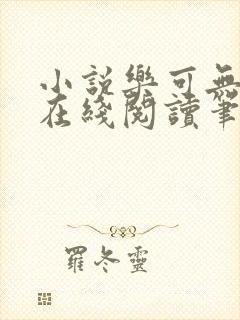 小說樂可無
在綫閱讀筆
羅冬靈